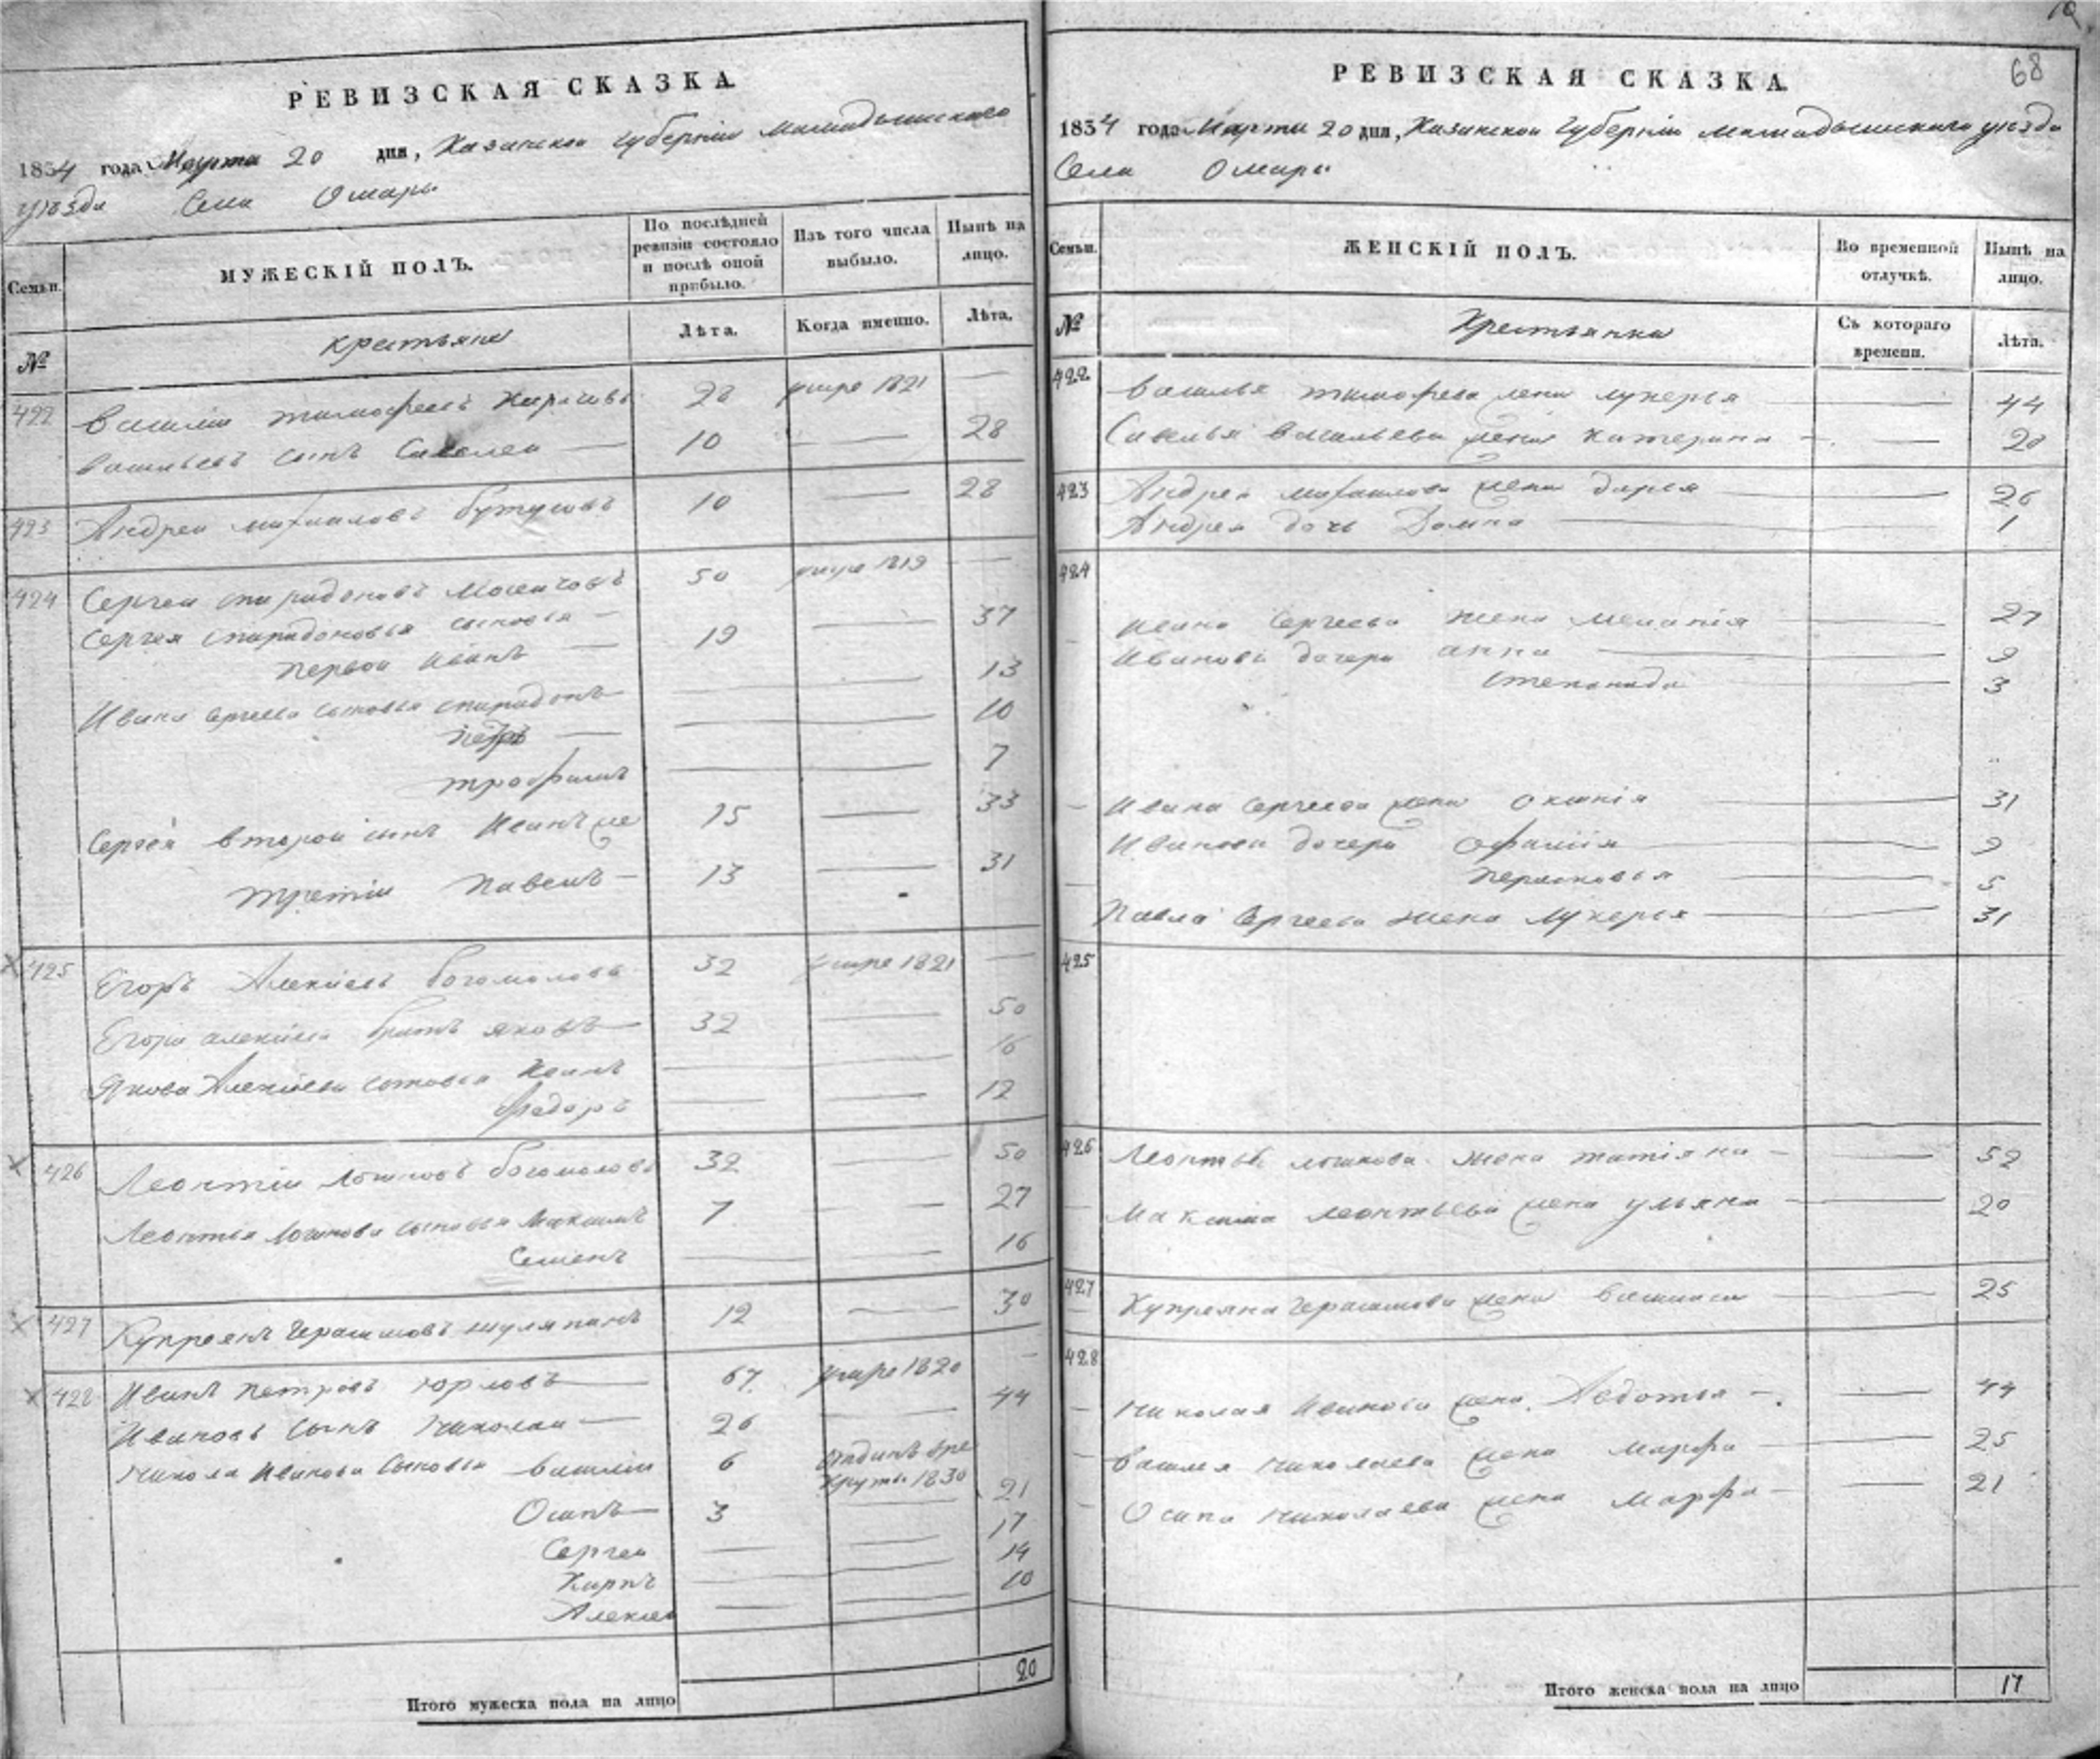 РЕВИЗСКАЯ СКАЗКА.
1834 года Марта 20 дня, Казанской губерніи Мамадышскаго
уѣзда Села Омары
Семьи.
МУЖЕСКІЙ ПОЛЪ.
По послѣдней ревизіи состояло и послѣ оной прибыло.
Изъ того числа выбыло.
Нынѣ на лицо.
№
крестьяне
Лѣта.
Когда именно.
Лѣта.
422 Василии тимофеевъ 28 умре 1821 —
Васильевъ сынъ Савелеи — 10 — 28
423 Андреи михаиловъ бутусовъ 10 — 28
424 Сергеи спиридоновъ 50 умре 1819 —
Сергея спиридоновья сыновья —
первои Иванъ — 19 — 37
Ивана сергеева сыновья спиридонъ — — 13
петръ — — — 10
трофимъ — — 7
Сергея второи сынъ Иванъ же 15 — 33
третіи павелъ — 13 — 31
425 Егоръ Алексеевъ богомоловъ 32 умре 1821 —
Егора алексеева братъ яковъ — 32 — 50
Якова Алексеева сыновья Иванъ — — 16
Федоръ — — 12
426 Леонтіи логиновъ богомоловъ 32 — 50
Леонтья логинова сыновья Максимъ 7 — 27
Семенъ — — 16
427 Купреянъ Герасимовъ шуляпинъ 12 — 30
428 Иванъ петровъ юрловъ — 67 умре 1820 —
Ивановъ сынъ Николаи — 26 — 44
Никола Иванова сыновья василии 6 отданъ в ре
круты 1830
Осипъ — 3 — 21
Сергеи — — 17
Карпъ — — 14
Алексеи — — 10
Итого мужеска пола на лицо 20
68
РЕВИЗСКАЯ СКАЗКА.
1834 года Марта 20 дня, Казанской Губерніи мамадышскаго уѣзда
Села Омары
Семьи.
ЖЕНСКІЙ ПОЛЪ.
Во временной отлучкѣ.
Нынѣ на лицо.
№
Крестьянки
Съ котораго времени.
Лѣта.
422 Василья тимофеева жена лукерья — 44
Савелья васильева жена катерина — 20
423 Андрея михаилова жена дарья — 26
Андрея дочь Домна — 1
424
Ивана Сергеева жена меланія — 27
Иванови дочери анна — 9
степанида — 3
Ивана сергеева жена оксинія — 31
Иванови дочери офимія — 9
перасковья — 5
Павла Сергеева жена лукерья — 31
425
426 Леонтья логинова жена татіяна — 52
Максима леонтьева жена ульяна — 20
427 Купреяна Герасимова жена василиса — 25
428
Николая Иванова жена Авдотья — 44
Василья николаева жена марфа — 25
Осипа николаева жена марфа — 21
Итого женска пола на лицо 17